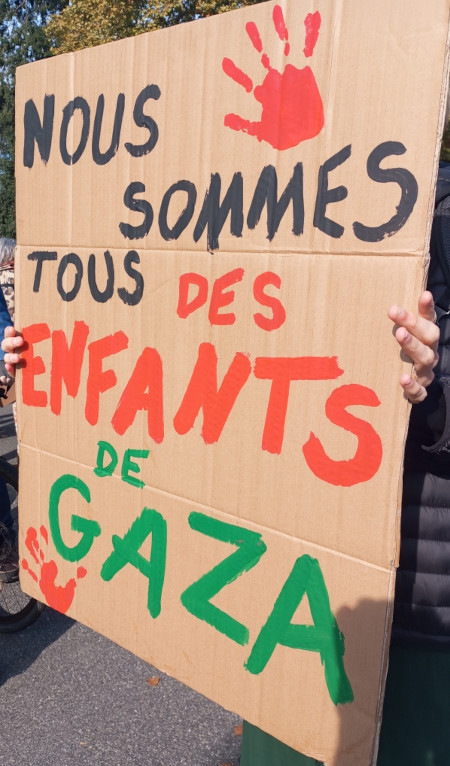 NOUS
SOMMES
TOUS DES
ENFANTS
DE
GAZA